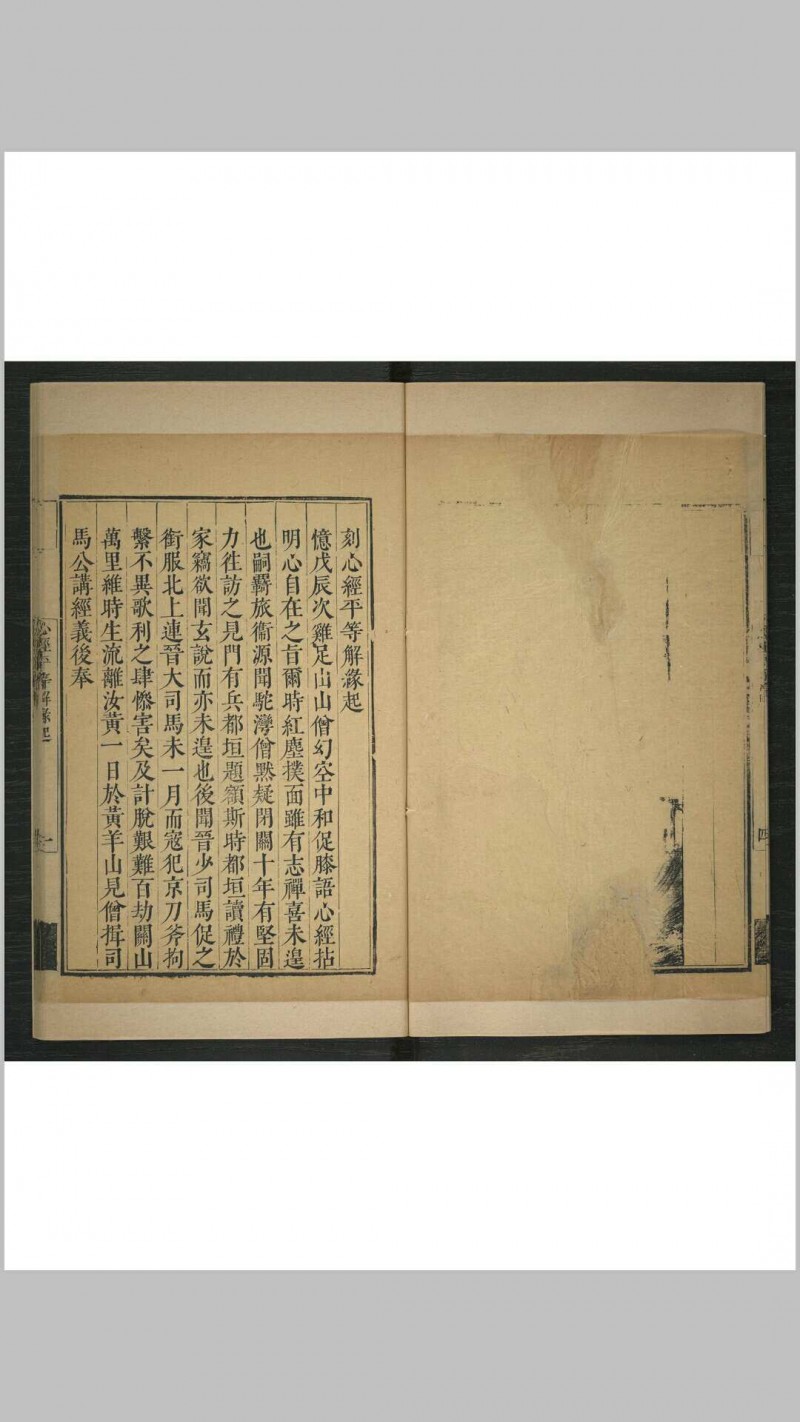 刻心經平等解緣起
憶戊辰次雞足山山僧幻空中和促膝語心經拈
明心自在之旨爾時紅塵撲面雖有志禪喜未遑
也嗣羇旅衞源聞駝灣僧黙疑閉關十年有堅固
力徃訪之見門有兵都垣題額斯時都垣讀禮於
家竊欲聞玄說而亦未遑也後聞晉少司馬促之
銜服北上連晉大司馬未一月而寇犯京刀斧拘
繫不異歌利之肆慘害矣及計脫艱難百劫關山
萬里維時生流離汝黃一日於黃羊山見僧揖司
馬公講經義後奉
心經平等解緣起
一
四